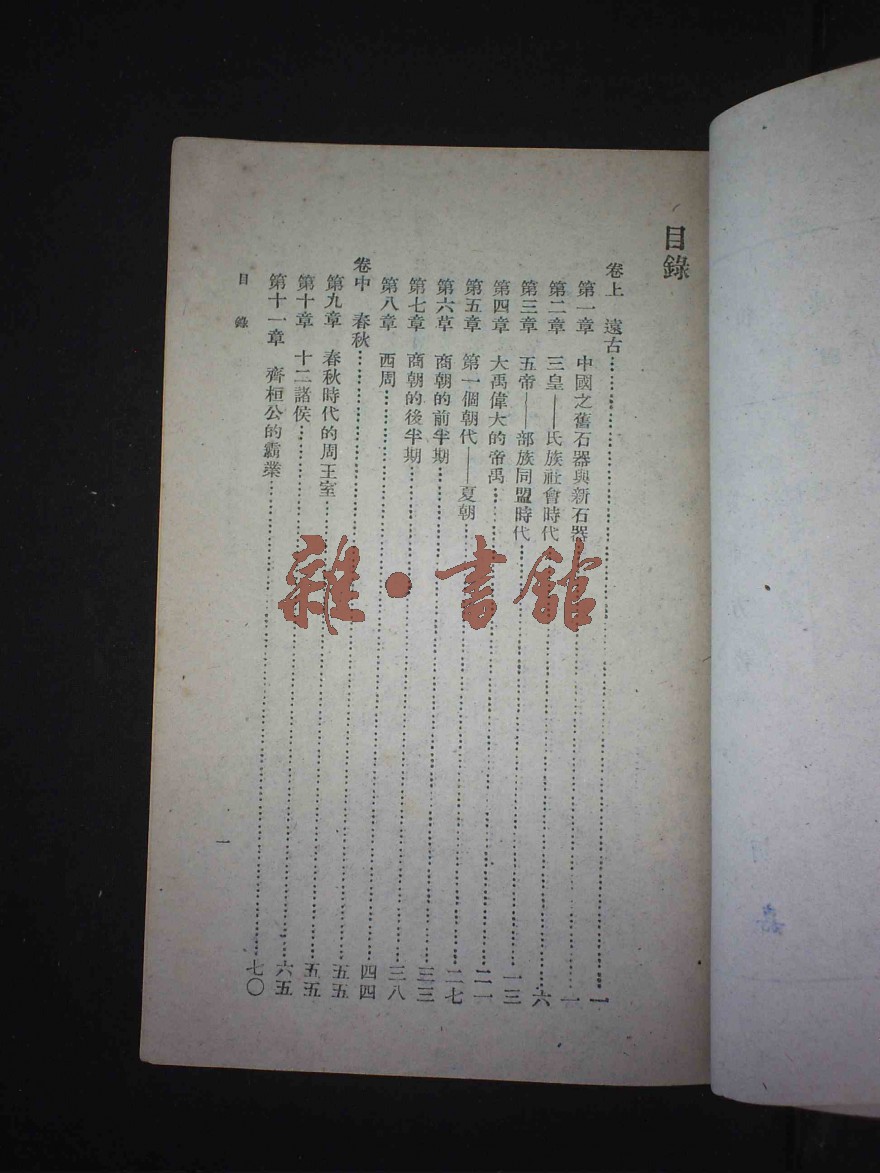 目錄
卷上 遠古……一
第一章 中國之舊石器與新石器……一
第二章 三皇——氏族社會時代……六
第三章 五帝——部族同盟時代……一三
第四章 大禹偉大的帝禹……二一
第五章 第一個朝代——夏朝……二七
第六草 商朝的前半期……三三
第七章 商朝的後半期……三八
第八章 西周……四四
卷中 春秋……五五
第九章 春秋時代的周王室……五五
第十章 十二諸侯……六五
第十一章 齊桓公的霸業……七〇
目錄
一
雜·書館